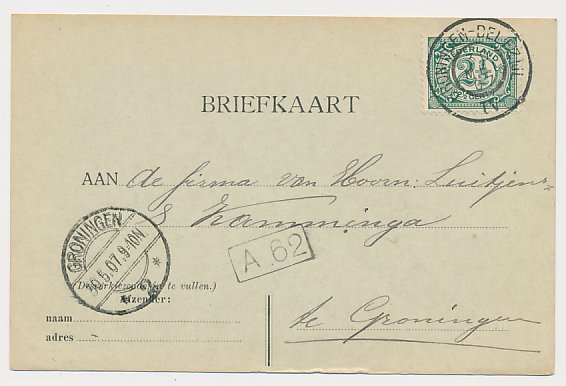 GRONINGEN-DELFZIJL
NEDERLAND
2½
CENT
BRIEFKAART
AAN de firma van Hoorn, Luitjens
& Kamminga
GRONINGEN
5.07.9-10N.
A 62
te vullen.)
Afzender:
naam
adres
te Groningen